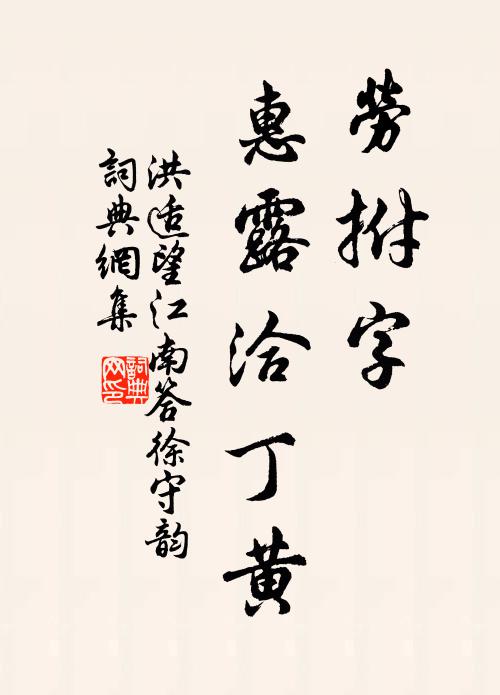 勞拊字
惠露洽丁黃
洪适望江南答徐守韵
詞典網集
詞典网印